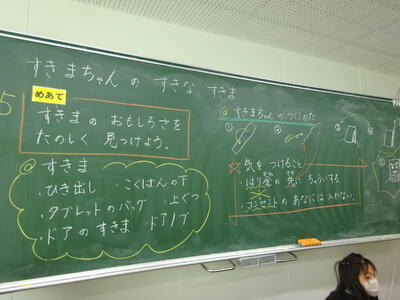 すきまちゃんの すきな すきま
めあて
すきまの おもしろさを
たのしく 見つけよう。
@ すきま
・ひき出し ・こくばんの下
・タブレットのバッグ ・上ぐつ
・ドアの すきま ドアノブ
@ すきまちゃんの つくりかた
① ② ③
☆ 気を つけること
・はり金の 先に ちゅういする。
・コンセントの あなには 入れない。